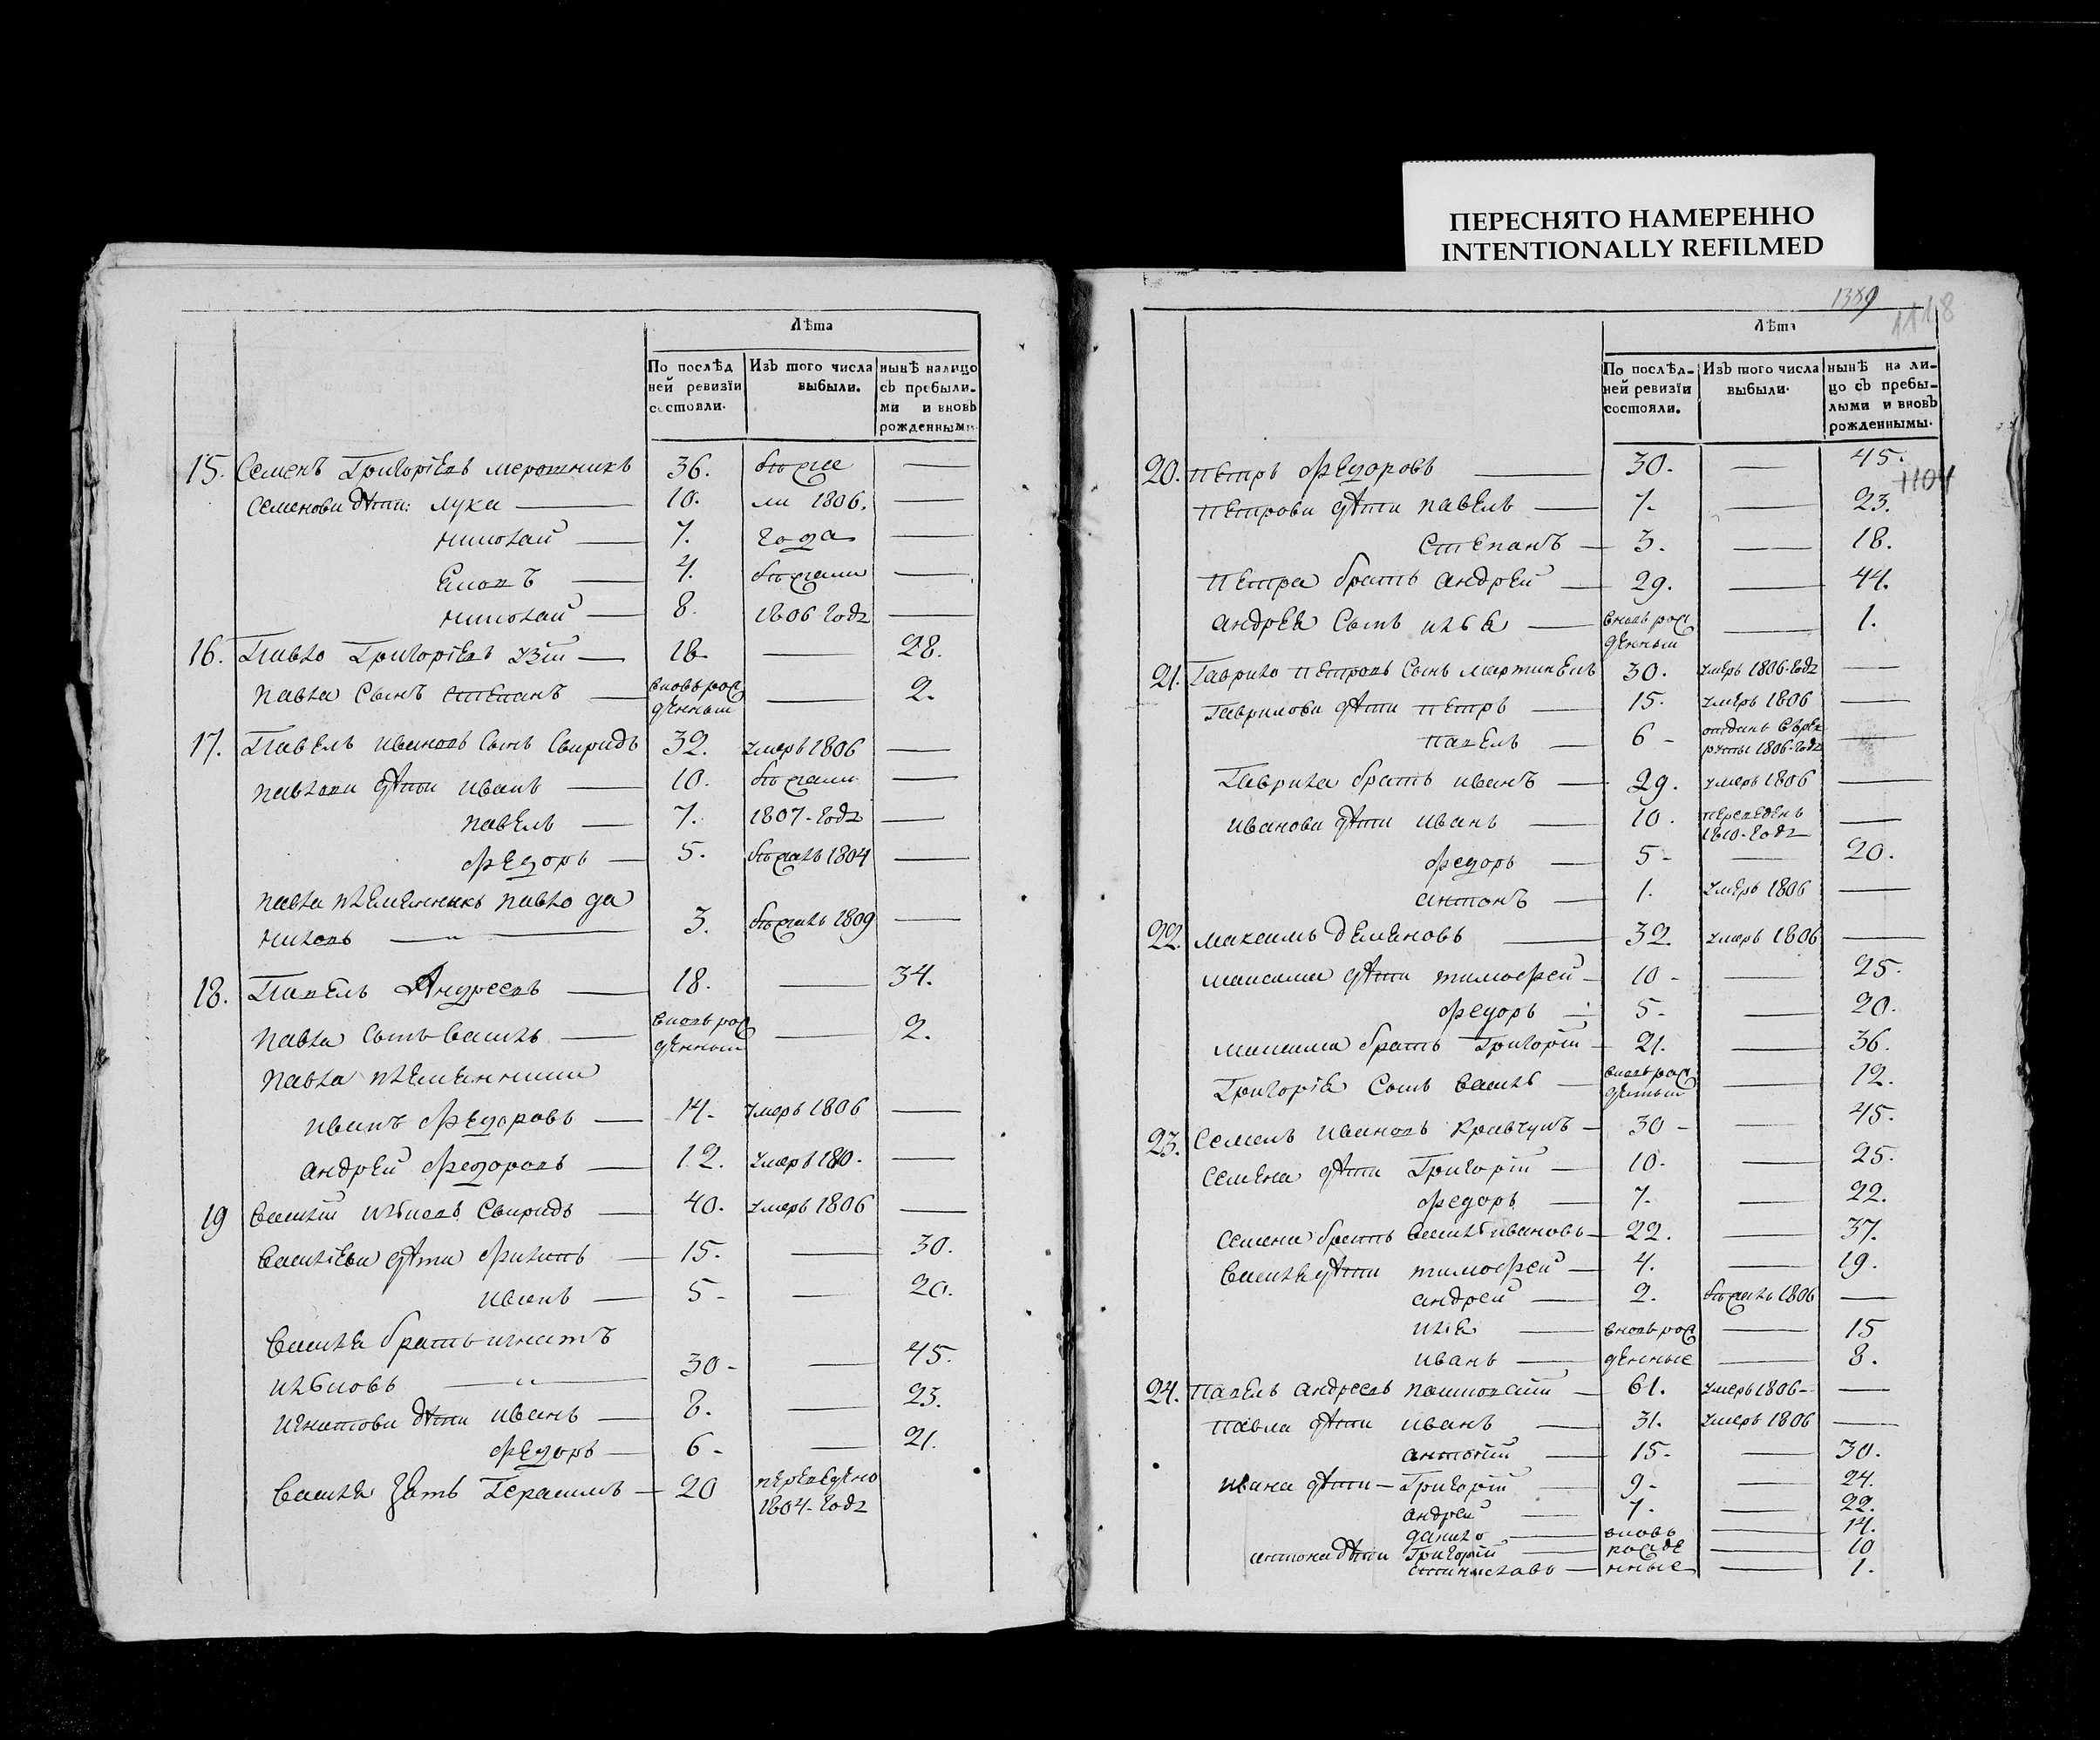 ПЕРЕСНЯТО НАМЕРЕННО
INTENTIONALLY REFILMED
Лѣта
По послѣд Изъ того числа нынѣ налицо
ней ревизїи выбыли. съ пребыли-
состояли. ми и вновь
рожденными
15. Семенъ Григорїевъ 36. —
Семенови дѣти: лука — 10. 1806. —
николай — 7. года —
4. бѣжали —
николай — 8. 1806 года —
16. Павло Григорїевъ — 18. — 28.
павла сынъ степанъ — вновь рож — 2.
денный
17. Павелъ ивановъ сынъ Свиридъ 32. умеръ 1806 —
павлови дѣти иванъ — 10. бѣжали —
павелъ — 7. 1807-года —
федоръ — 5. бѣжалъ 1804 —
павла племенникъ павло да
— 3. бѣжалъ 1809 —
18. Павелъ Андреевъ — 18. — 34.
павла сынъ василь — вновь рож — 2.
денный
павла племенники
иванъ федоровъ — 14. умеръ 1806 —
андрей федоровъ — 12. умеръ 180. —
19 василий Свиридъ — 40. умеръ 1806 —
василїеви дѣти филипъ — 15. — 30.
иванъ — 5 — 20.
василя братъ игнатъ
— 30 — 45.
игнатови дѣти иванъ — 8. — 23.
федоръ — 6 — 21.
василя зять Герасимъ — 20 переведено
1804-года
1389
1118
Лѣта
По послѣд- Изъ того числа нынѣ на ли-
ней ревизїи выбыли. цо съ пребы-
состояли. лыми и вновь
рожденнымы.
1104
20. петръ федоровъ — 30. — 45.
петрови дѣти павелъ — 7. — 23.
степанъ — 3. — 18.
петра братъ андрей — 29. — 44.
андрея сынъ илья — вновь рож — 1.
денный
21. Гаврило петровъ сынъ 30. умеръ 1806-года —
Гаврилови дѣти петръ — 15. умеръ 1806 —
павелъ — 6 — отданъ врек
руты 1806-года —
Гаврила братъ иванъ — 29. умеръ 1806 —
иванови дѣти иванъ — 10. переведенъ —
1810-года
федоръ — 5 — 20.
антонъ — 1. умеръ 1806 —
22. максимъ деменовъ — 32. умеръ 1806 —
максима дѣти тимофей — 10 — 25.
федоръ — 5 — 20.
максима братъ Григорїй — 21. — 36.
Григорїя сынъ василь — вновь рож — 12.
денный
23. Семенъ ивановъ кравчукъ — 30 — 45.
семена дѣти Григорїй — 10. — 25.
федоръ — 7. — 22.
семена братъ василь ивановъ — 22. — 37.
василя дѣти тимофей — 4. — 19.
андрей — 2. бѣжалъ 1806 —
илїя — вновь рож — 15
иванъ — денные — 8.
24. павелъ андреевъ — 61. умеръ 1806 —
павла дѣти иванъ — 31. умеръ 1806 —
антонїй — 15 — 30.
ивана дѣти — Григорїй — 9 — 24.
андрей — 7 — 22.
данило — вновь — 14.
антона дѣти Григорїй — рожде — 10
станиславъ — нные — 1.